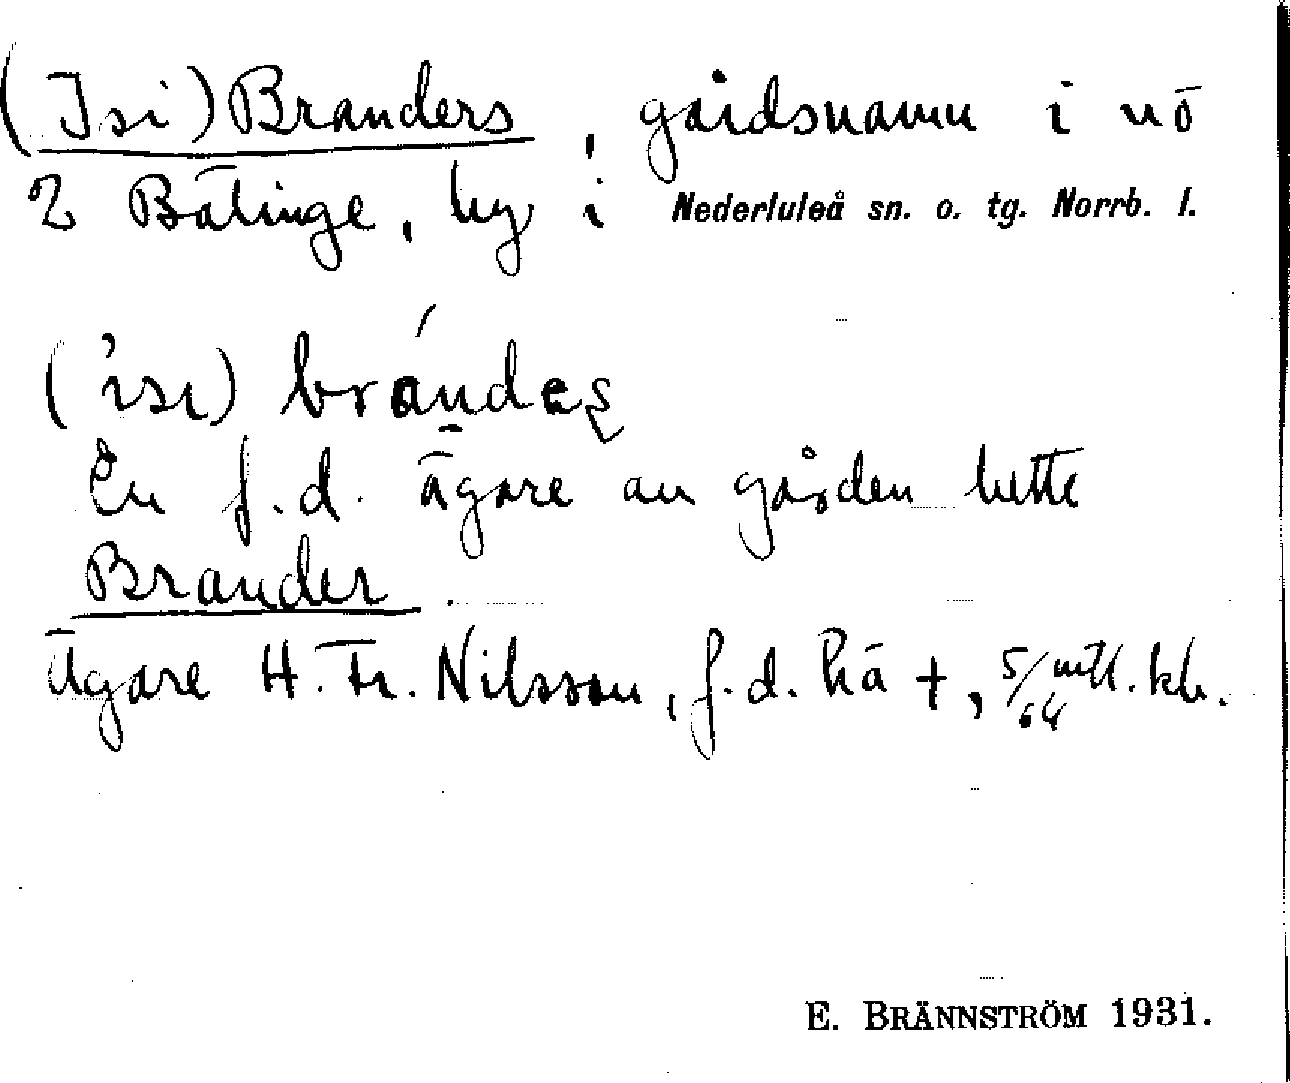 (Isi) Branders, gårdsnamn i nö
2 Bälinge, by i Nederluleå sn. o. tg. Norrb. l.
('ɪsɪ) brándes
En f.d. ägare av gården hette
Brander.
Ägare H. Fr. Nilsson, f.d. hä +, 5/64 mtl. kr.
E. BRÄNNSTRÖM 1931.